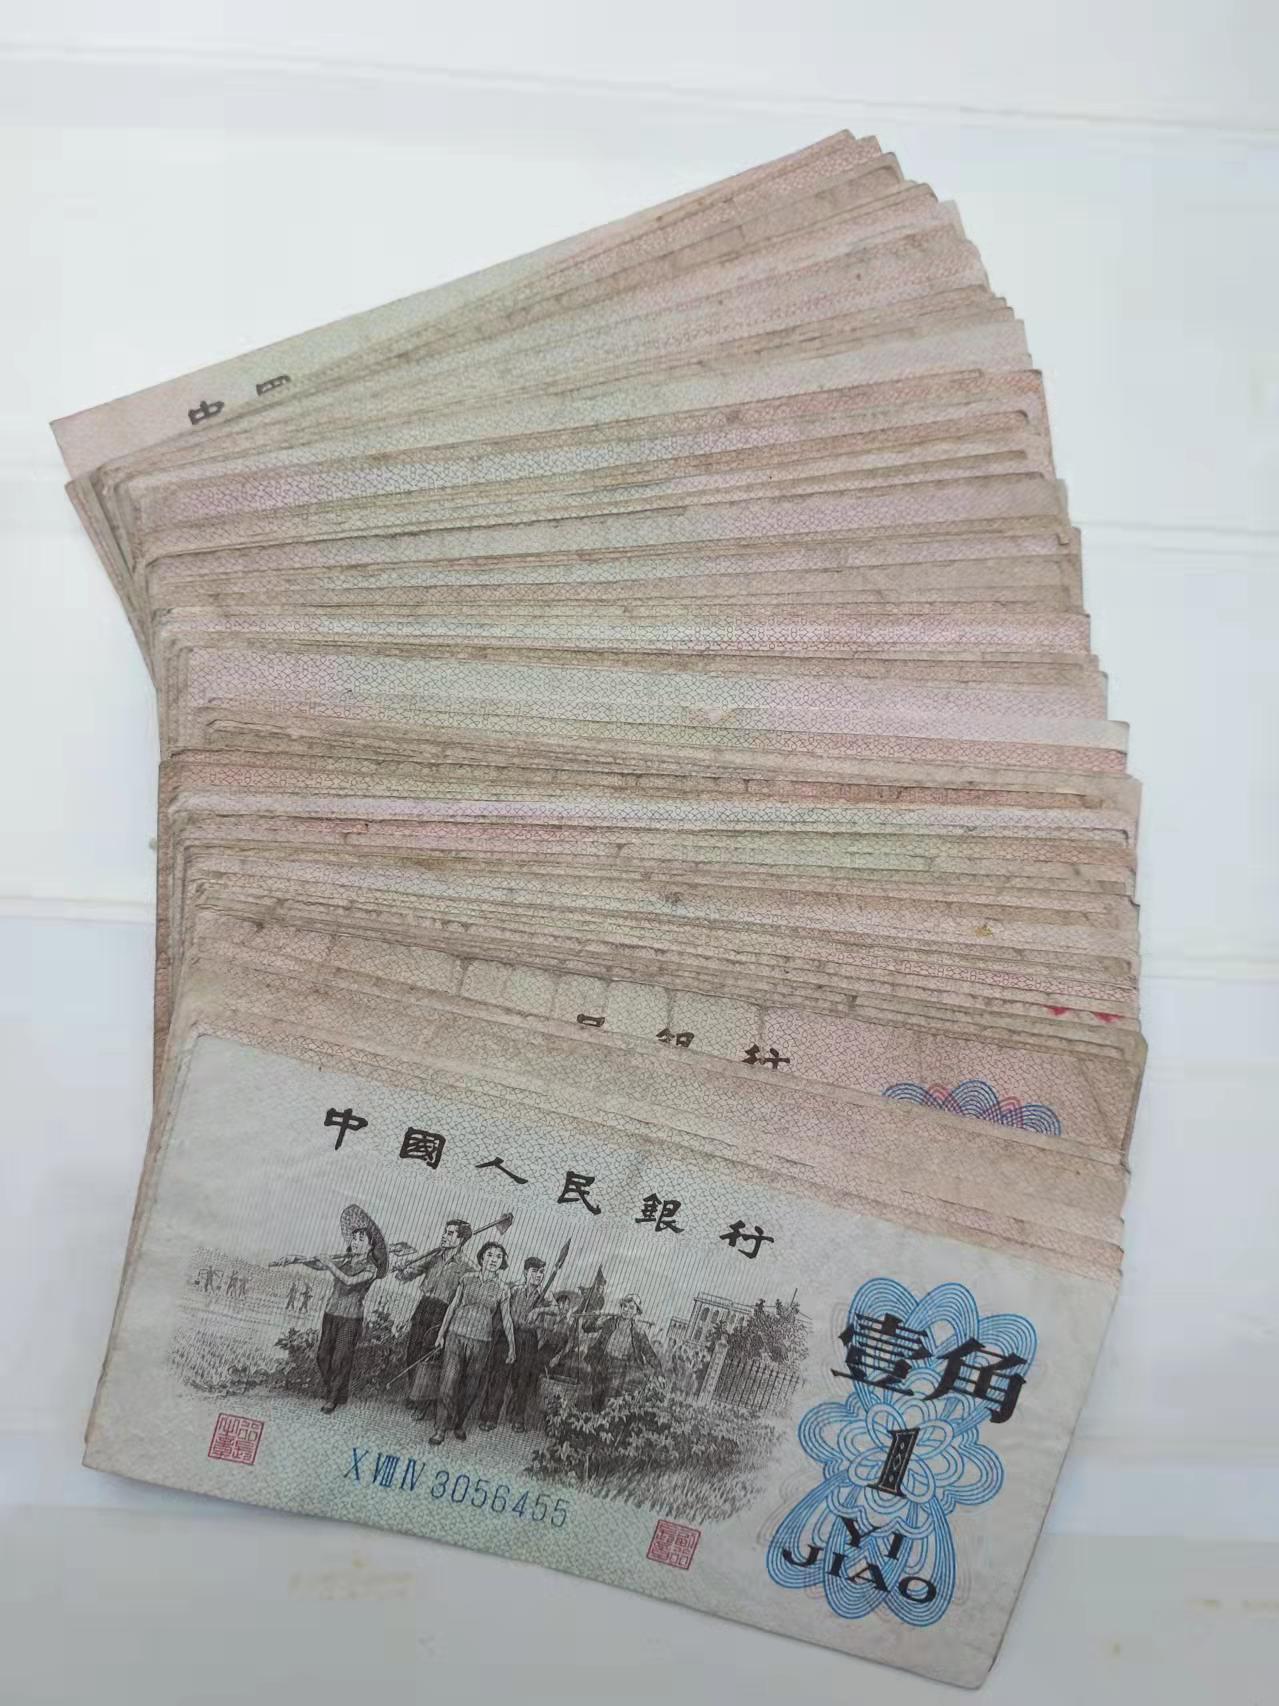 中國人民銀行
壹角
1
YI
JIAO
X VIII IV 3056455
銀行
中